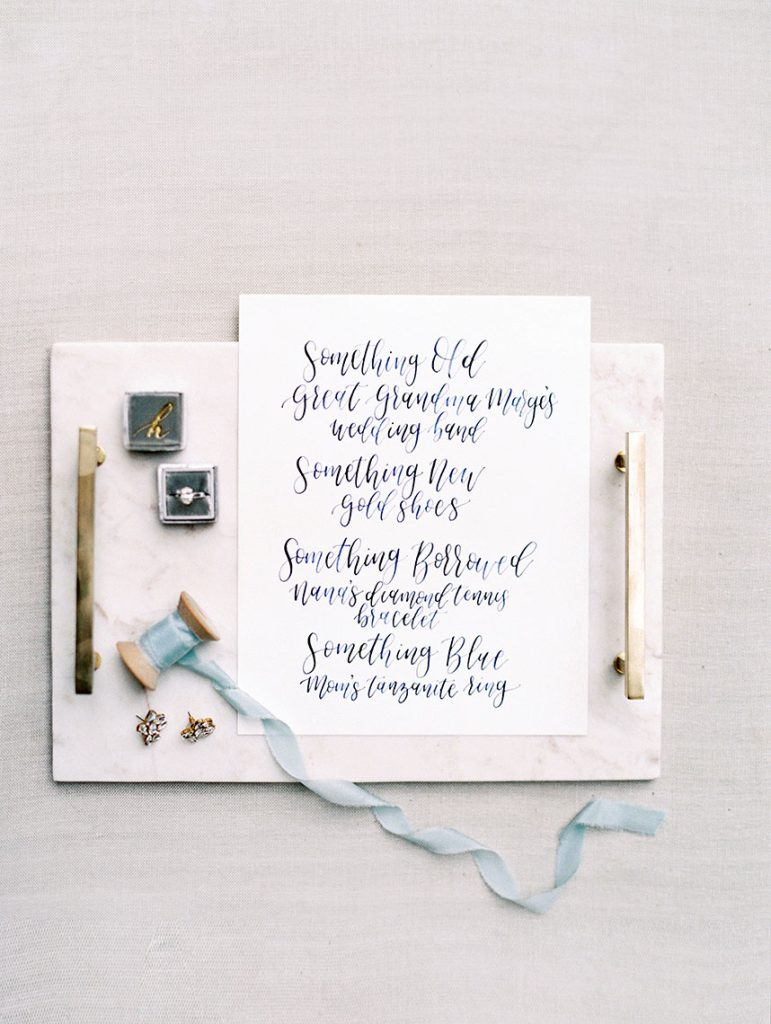 h
Something Old
Great Grandma Marge's
wedding band
Something New
gold shoes
Something Borrowed
Nana's diamond tennis
bracelet
Something Blue
Mom's tanzanite ring